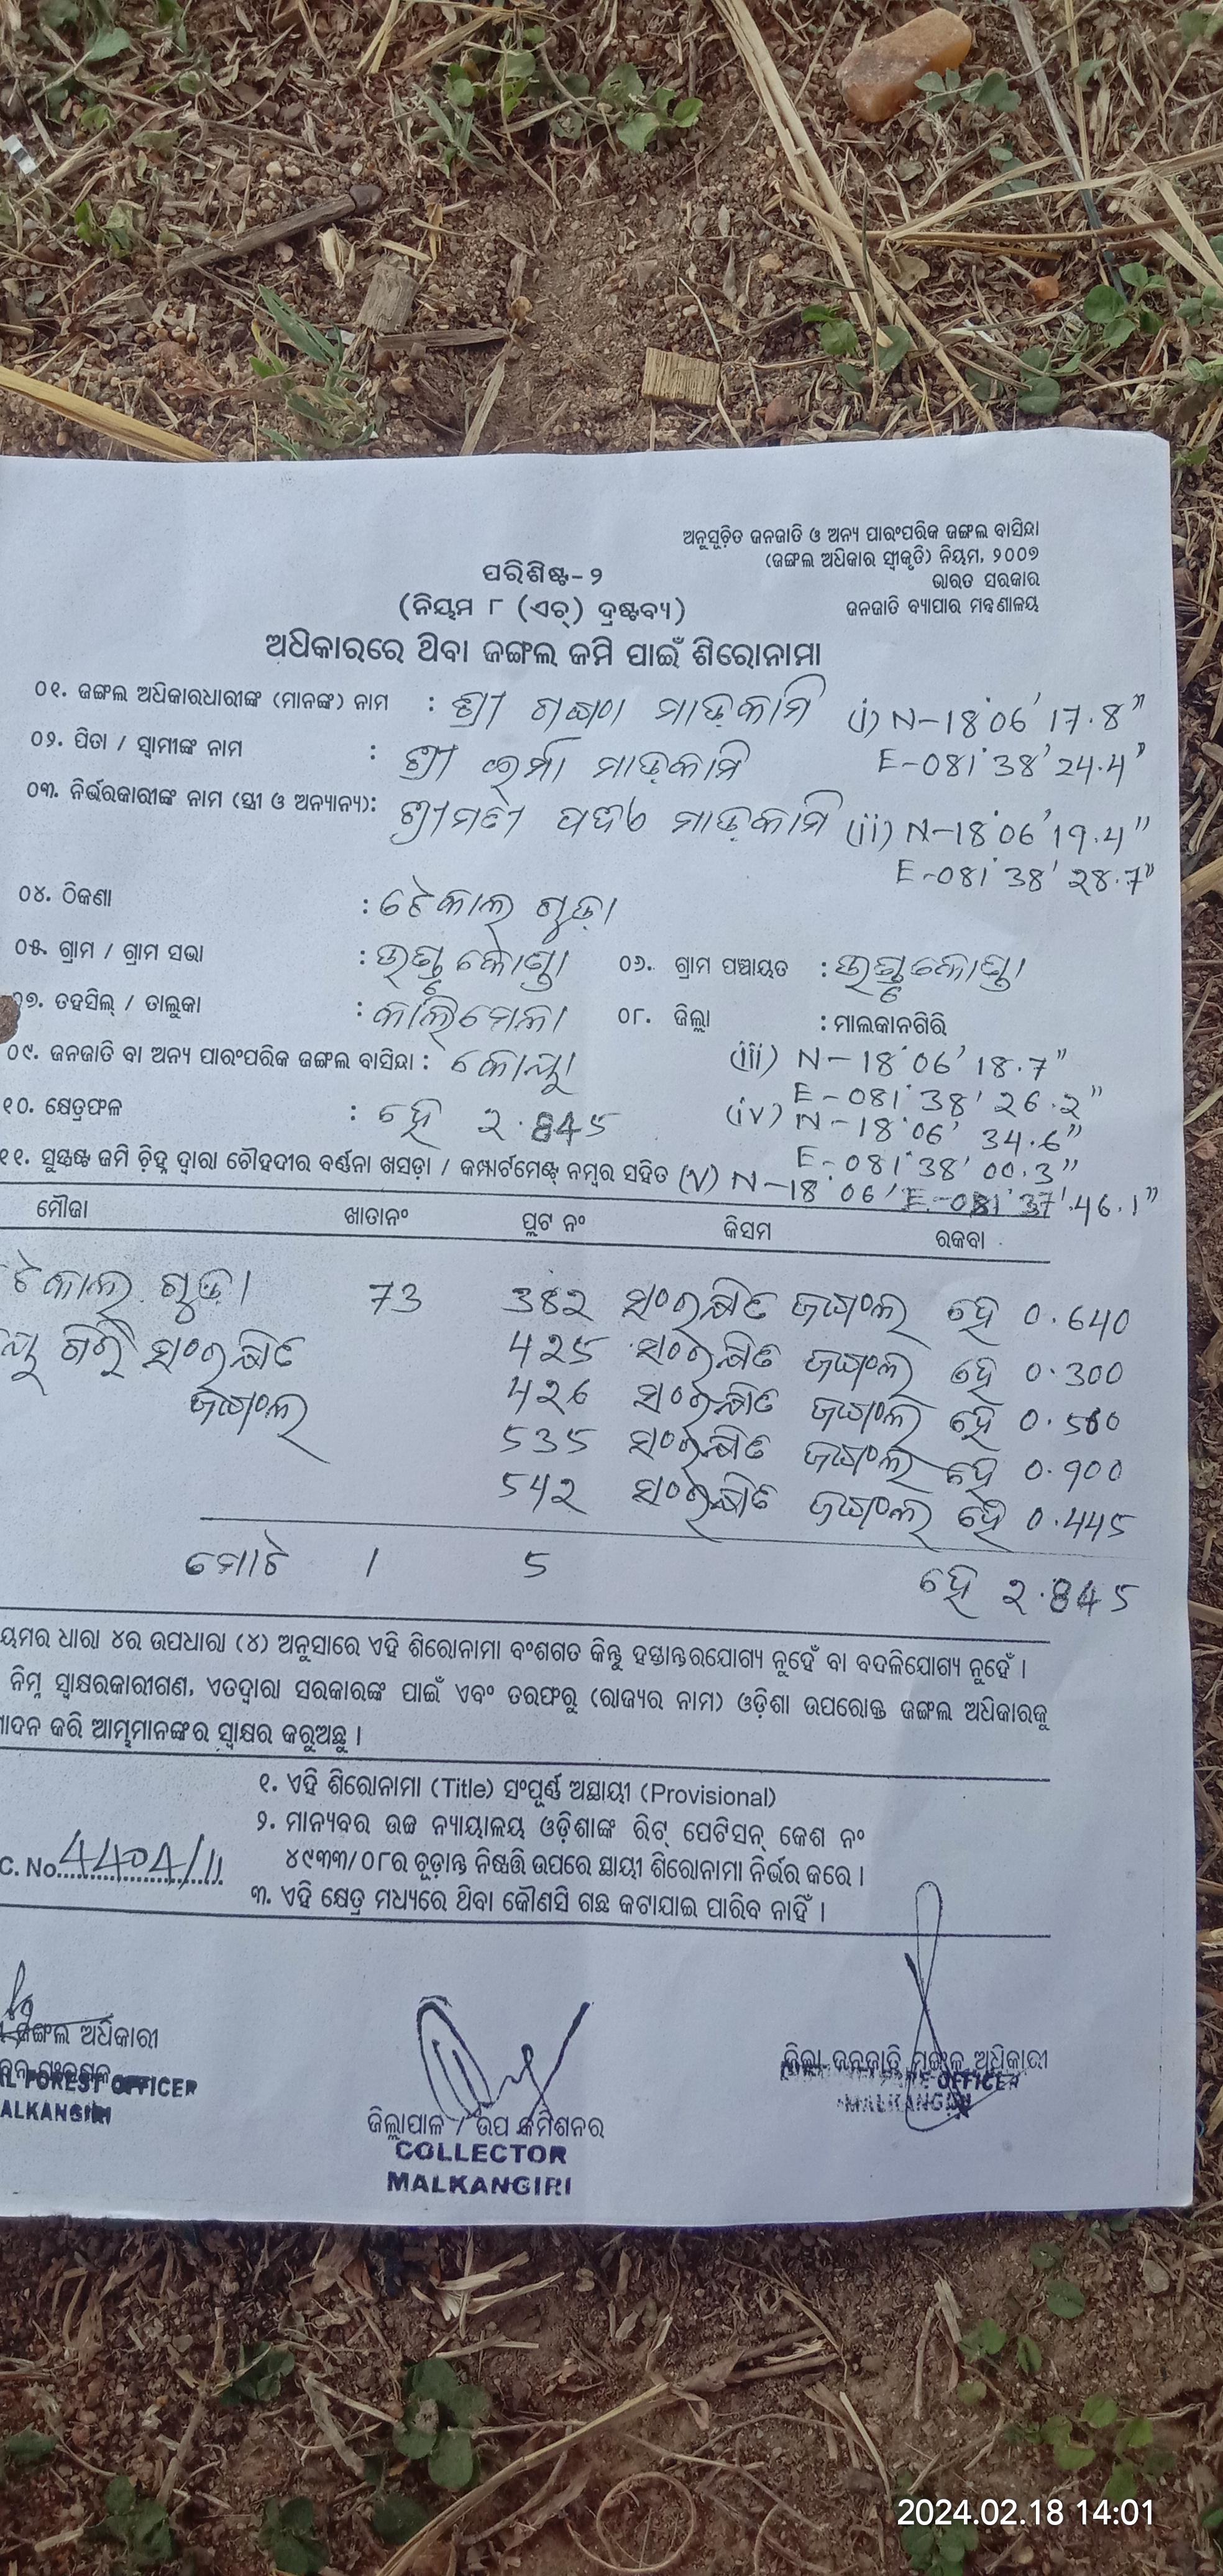 ଅନୁସୂଚିତ ଜନଜାତି ଓ ଅନ୍ୟ ପାରଂପରିକ ଜଙ୍ଗଲ ବାସିନ୍ଦା
(ଜଙ୍ଗଲ ଅଧିକାର ସ୍ୱୀକୃତି) ନିୟମ, ୨୦୦୭
ଭାରତ ସରକାର
ଜନଜାତି ବ୍ୟାପାର ମନ୍ତ୍ରଣାଳୟ
ପରିଶିଷ୍ଟ-୨
(ନିୟମ ୮ (ଏଚ୍) ଦ୍ରଷ୍ଟବ୍ୟ)
ଅଧିକାରରେ ଥିବା ଜଙ୍ଗଲ ଜମି ପାଇଁ ଶିରୋନାମା
୦୧. ଜଙ୍ଗଲ ଅଧିକାରଧାରୀଙ୍କ (ମାନଙ୍କ) ନାମ : ଶ୍ରୀ ମାଡ଼କାମି (i) N-18°06'17.8"
୦୨. ପିତା / ସ୍ୱାମୀଙ୍କ ନାମ : ଶ୍ରୀ ମାଡ଼କାମି E-081°38'24.4"
୦୩. ନିର୍ଭରକାରୀଙ୍କ ନାମ (ସ୍ତ୍ରୀ ଓ ଅନ୍ୟାନ୍ୟ): ଶ୍ରୀମତୀ ମାଡ଼କାମି (ii) N-18°06'19.4"
E-081°38'28.7"
୦୪. ଠିକଣା : ଟେକାଲ ଗୁଡ଼ା
୦୫. ଗ୍ରାମ / ଗ୍ରାମ ସଭା : ୦୬. ଗ୍ରାମ ପଞ୍ଚାୟତ :
୦୭. ତହସିଲ୍ / ତାଲୁକା : କାଲିମେଳା ୦୮. ଜିଲ୍ଲା : ମାଲକାନଗିରି
୦୯. ଜନଜାତି ବା ଅନ୍ୟ ପାରଂପରିକ ଜଙ୍ଗଲ ବାସିନ୍ଦା : କୋୟା (iii) N-18°06'18.7"
E-081°38'26.2"
୧୦. କ୍ଷେତ୍ରଫଳ : ହେ ୨.845 (iv) N-18°06'34.6"
E-081°38'00.3"
୧୧. ସୁସ୍ପଷ୍ଟ ଜମି ଚିହ୍ନ ଦ୍ୱାରା ଚୌହଦୀର ବର୍ଣ୍ଣନା ଖସଡ଼ା / କମ୍ପାର୍ଟମେଣ୍ଟ୍ ନମ୍ବର ସହିତ (V) N-18°06' E-081°37'46.1"
ମୌଜା ଖାତାନଂ ପ୍ଲଟ ନଂ କିସମ ରକବା
ଟେକାଲ ଗୁଡ଼ା 73 38୨ ସଂରକ୍ଷିତ ଜଙ୍ଗଲ ହେ 0.640
ଗିରି ସଂରକ୍ଷିତ 4୨5 ସଂରକ୍ଷିତ ଜଙ୍ଗଲ ହେ 0.300
ଜଙ୍ଗଲ 4୨6 ସଂରକ୍ଷିତ ଜଙ୍ଗଲ ହେ
535 ସଂରକ୍ଷିତ ଜଙ୍ଗଲ ହେ 0.900
54୨ ସଂରକ୍ଷିତ ଜଙ୍ଗଲ ହେ 0.445
ମୋଟ 1 5 ହେ ୨.845
ୟମର ଧାରା ୪ର ଉପଧାରା (୪) ଅନୁସାରେ ଏହି ଶିରୋନାମା ବଂଶଗତ କିନ୍ତୁ ହସ୍ତାନ୍ତରଯୋଗ୍ୟ ନୁହେଁ ବା ବଦଳିଯୋଗ୍ୟ ନୁହେଁ ।
ନିମ୍ନ ସ୍ୱାକ୍ଷରକାରୀଗଣ, ଏତଦ୍ୱାରା ସରକାରଙ୍କ ପାଇଁ ଏବଂ ତରଫରୁ (ରାଜ୍ୟର ନାମ) ଓଡ଼ିଶା ଉପରୋକ୍ତ ଜଙ୍ଗଲ ଅଧିକାରକୁ
ାଦନ କରି ଆମ୍ଭମାନଙ୍କର ସ୍ୱାକ୍ଷର କରୁଅଛୁ ।
୧. ଏହି ଶିରୋନାମା (Title) ସଂପୂର୍ଣ୍ଣ ଅସ୍ଥାୟୀ (Provisional)
୨. ମାନ୍ୟବର ଉଚ୍ଚ ନ୍ୟାୟାଳୟ ଓଡ଼ିଶାଙ୍କ ରିଟ୍ ପେଟିସନ୍ କେଶ ନଂ
୪୯୩୩/୦୮ର ଚୂଡ଼ାନ୍ତ ନିଷ୍ପତ୍ତି ଉପରେ ସ୍ଥାୟୀ ଶିରୋନାମା ନିର୍ଭର କରେ ।
C. No. 4404/11
୩. ଏହି କ୍ଷେତ୍ର ମଧ୍ୟରେ ଥିବା କୌଣସି ଗଛ କଟାଯାଇ ପାରିବ ନାହିଁ ।
ଜଙ୍ଗଲ ଅଧିକାରୀ
L FOREST OFFICER
ALKANGIRI
ଜିଲ୍ଲାପାଳ / ଉପ କମିଶନର
COLLECTOR
MALKANGIRI
ଜିଲ୍ଲା ଜନଜାତି ମଙ୍ଗଳ ଅଧିକାରୀ
OFFICER
MALKANGIRI
2024.02.18 14:01